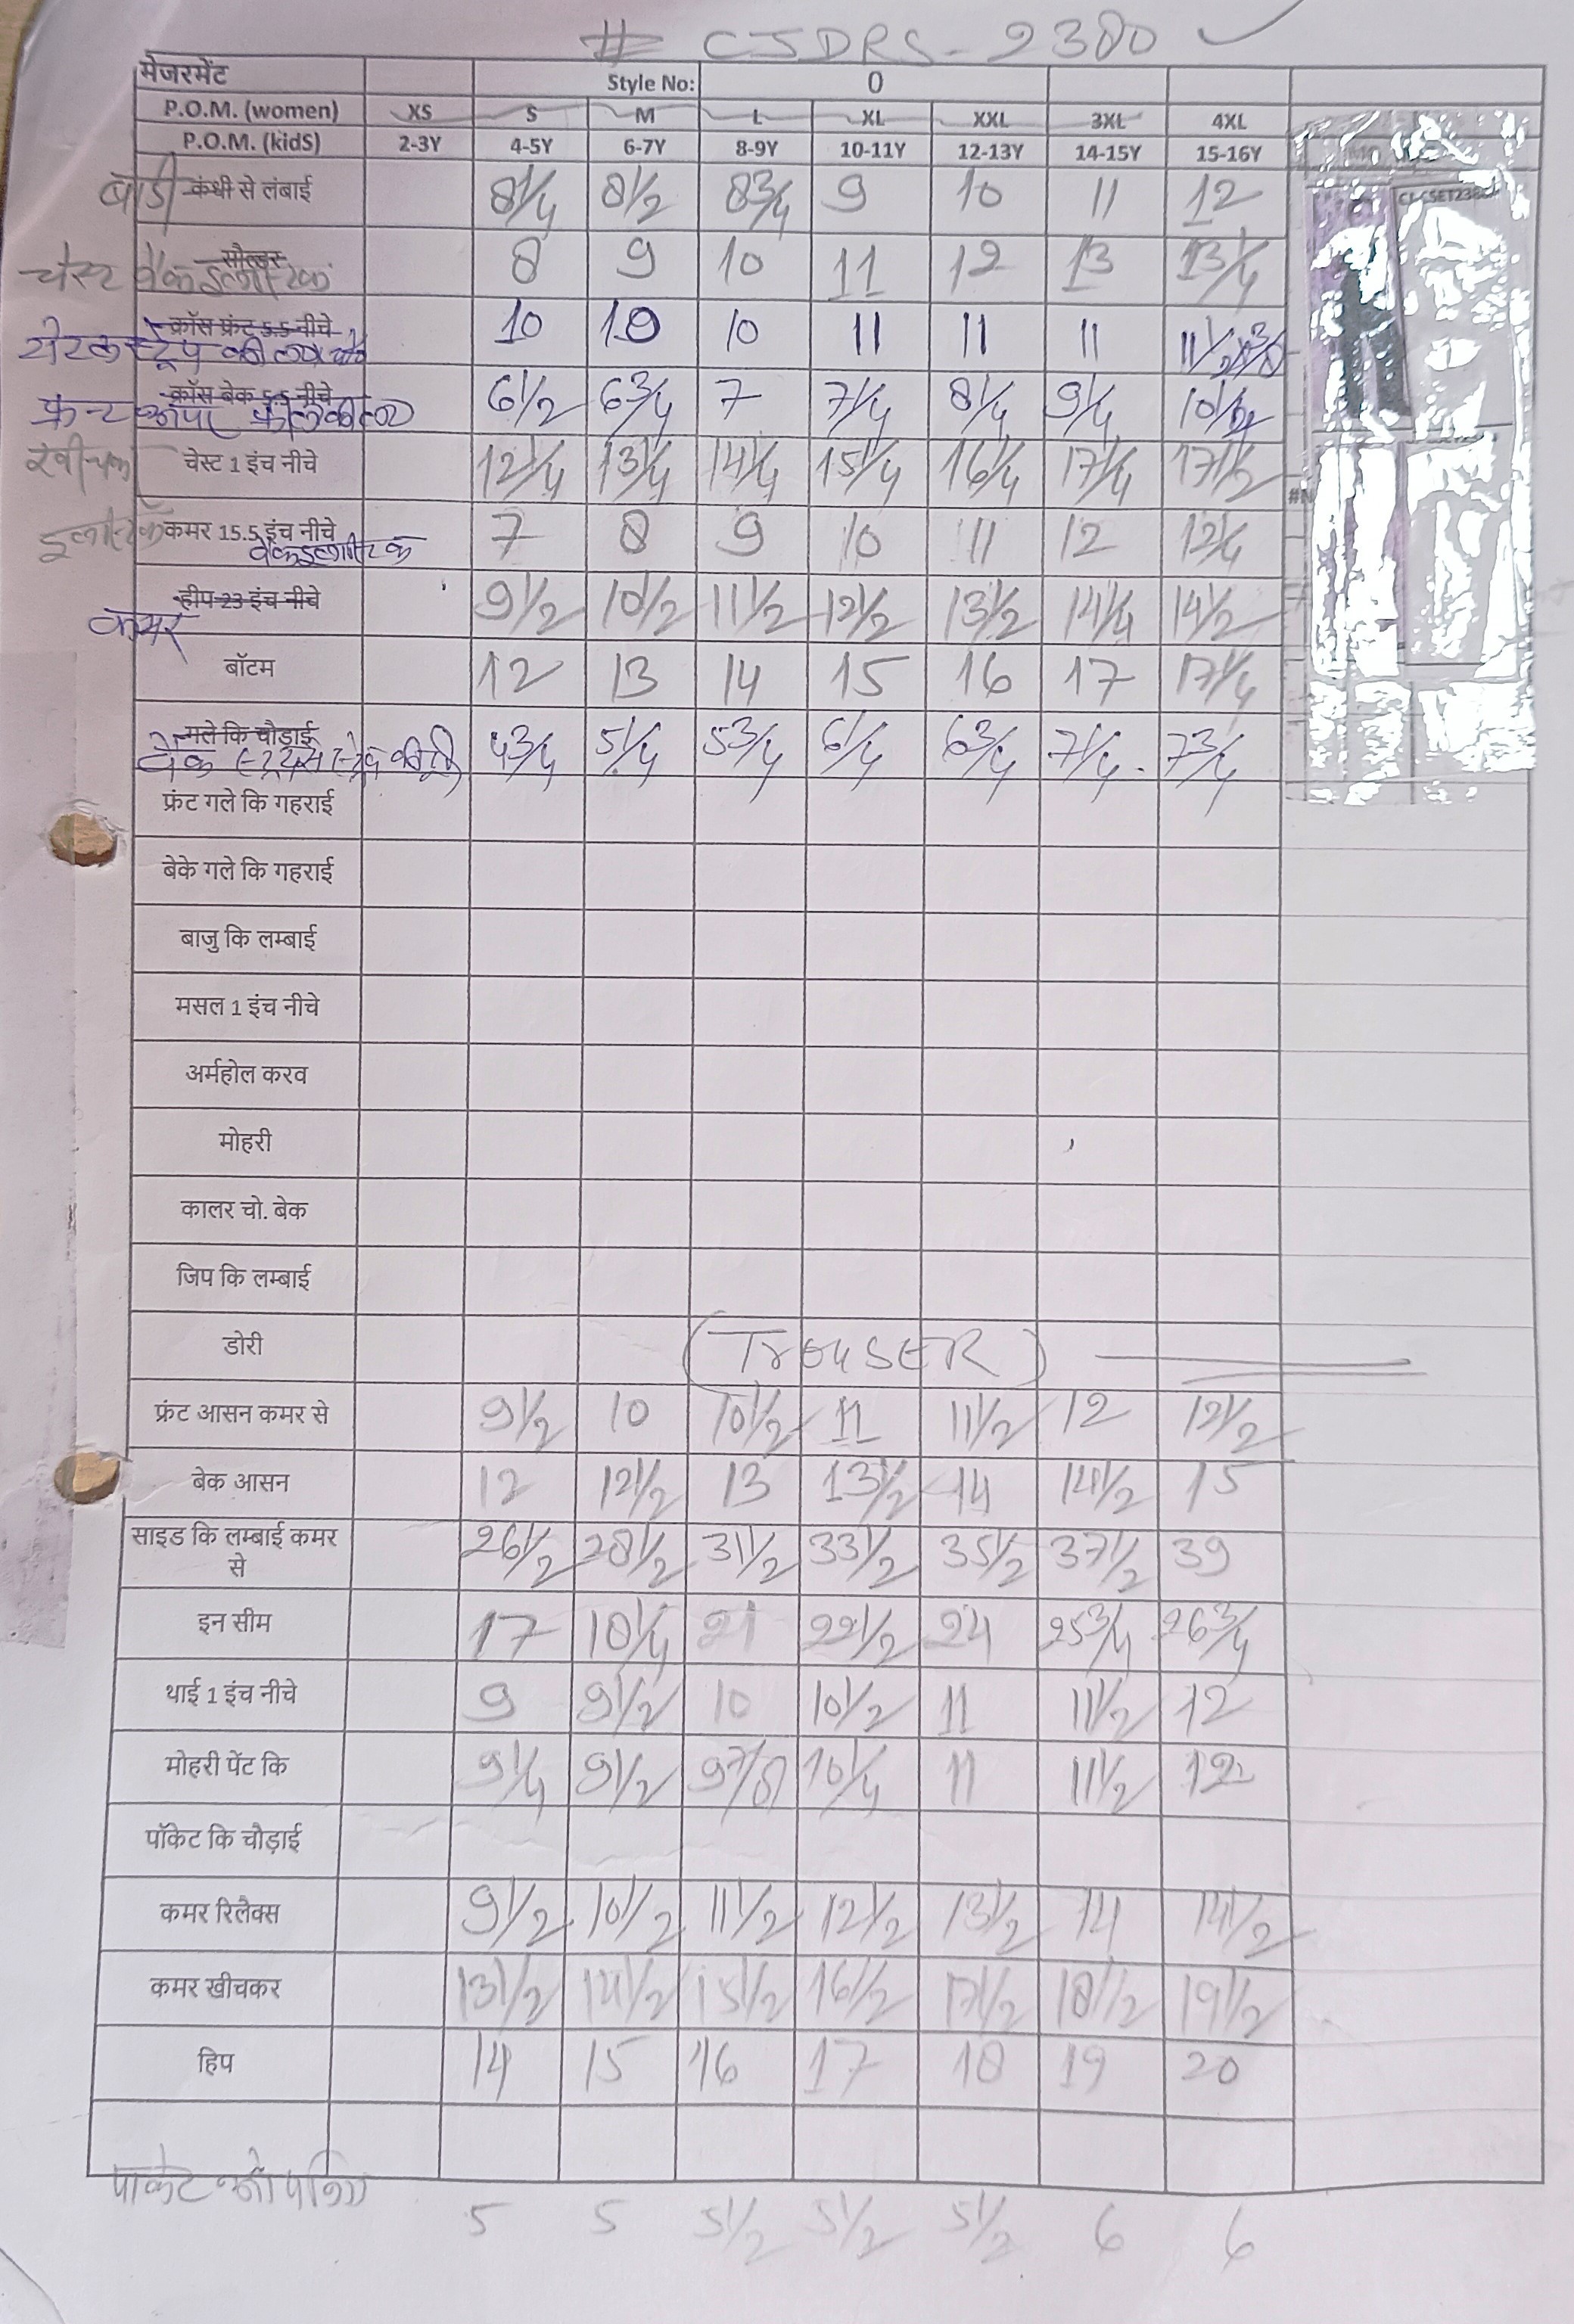 # CSDRS-2380
मेजरमेंट Style No: 0
P.O.M. (women) XS S M L XL XXL 3XL 4XL
P.O.M. (kidS) 2-3Y 4-5Y 6-7Y 8-9Y 10-11Y 12-13Y 14-15Y 15-16Y
बॉडी कंधी से लंबाई 8 1/4 8 1/2 8 3/4 9 10 11 12
चेस्ट बैक इलास्टिक सौल्डर 8 9 10 11 12 13 13 1/4
क्रॉस फ्रंट 5.5 नीचे 10 10 10 11 11 11 11 1/2
क्रॉस बेक 5.5 नीचे 6 1/2 6 3/4 7 7 1/4 8 1/4 9 1/4
चेस्ट 1 इंच नीचे 12 1/4 13 1/4 14 1/4 15 1/4 16 1/4 17 1/4 17 1/2
इलास्टिक कमर 15.5 इंच नीचे 7 8 9 10 11 12 12 1/4
बैक इलास्टिक
कमर हीप 23 इंच नीचे 9 1/2 10 1/2 11 1/2 12 1/2 13 1/2 14 1/4 14 1/2
बॉटम 12 13 14 15 16 17 17 1/4
गले कि चौड़ाई 4 3/4 5 1/4 5 3/4 6 1/4 6 3/4 7 1/4 7 3/4
बैक
फ्रंट गले कि गहराई
बेके गले कि गहराई
बाजु कि लम्बाई
मसल 1 इंच नीचे
अर्महोल करव
मोहरी
कालर चो. बेक
जिप कि लम्बाई
डोरी (TrouSER)
फ्रंट आसन कमर से 9 1/2 10 10 1/2 11 11 1/2 12 12 1/2
बेक आसन 12 12 1/2 13 13 1/2 14 14 1/2 15
साइड कि लम्बाई कमर से 26 1/2 28 1/2 31 1/2 33 1/2 35 1/2 37 1/2 39
इन सीम 17 18 1/4 21 22 1/2 24 25 3/4 26 3/4
थाई 1 इंच नीचे 9 9 1/2 10 10 1/2 11 11 1/2 12
मोहरी पेंट कि 9 1/4 9 1/2 9 7/8 10 1/4 11 11 1/2 12
पॉकेट कि चौड़ाई
कमर रिलैक्स 9 1/2 10 1/2 11 1/2 12 1/2 13 1/2 14 14 1/2
कमर खीचकर 13 1/2 14 1/2 15 1/2 16 1/2 17 1/2 18 1/2 19 1/2
हिप 14 15 16 17 18 19 20
पाकेट ओपनिग 5 5 5 1/2 5 1/2 5 1/2 6 6